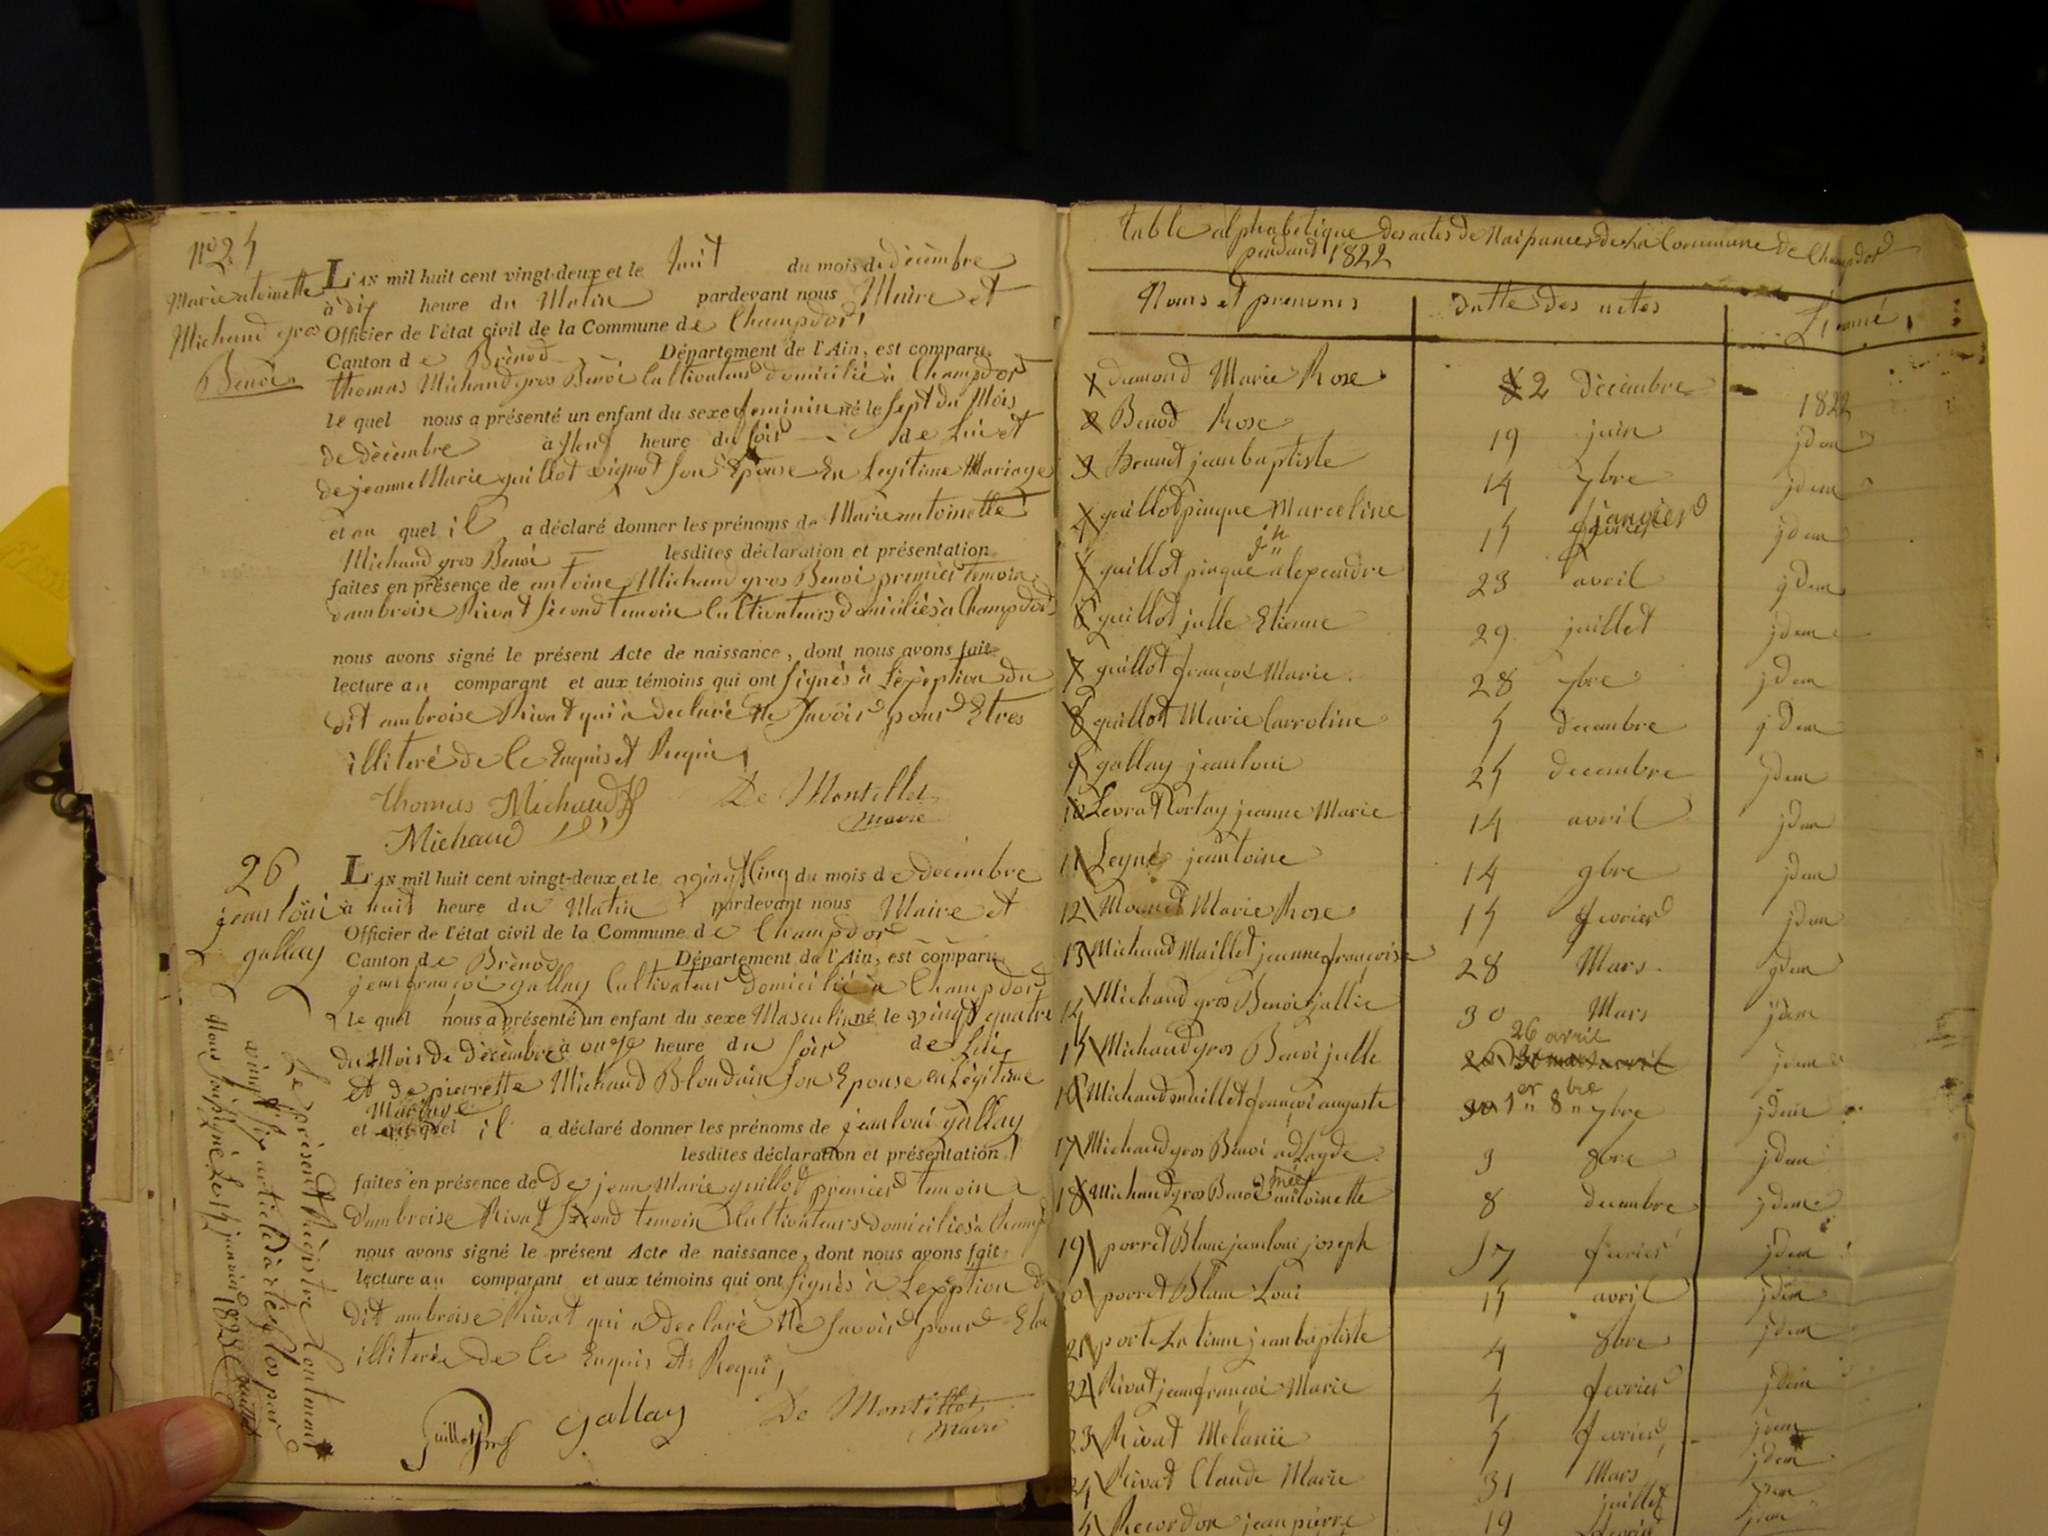 n° 25
Marie antoinette
Michaud gros
Benoi
L'AN mil huit cent vingt-deux et le huit du mois de décembre
à dix heure du Matin pardevant nous Maire et
Officier de l'état civil de la Commune de Champdor
Canton de Brénod Département de l'Ain, est comparu
thomas Michaud gros Benoi Cultivateur domicilié à Champdor
le quel nous a présenté un enfant du sexe feminin né le sept du Mois
de décembre à neuf heure du soir de lui et
de jeanne Marie guillot vignot son Epouse En Legitime Mariage
et au quel il a déclaré donner les prénoms de Marie antoinette
Michaud gros Benoi lesdites déclaration et présentation
faites en présence de antoine Michaud gros Benoi premier temoin
d'ambroise Rivat second temoin Cultivateurs domiciliés à Champdor
nous avons signé le présent Acte de naissance, dont nous avons fait
lecture au comparant et aux témoins qui ont signés à L'exeption du
dit ambroise Rivat qui a declaré Ne savoir pour Etres
illiteré de ce Enquis et Requis
thomas Michaud
De Montillet
Maire
Michaud
26
jean loui
gallay
L'AN mil huit cent vingt-deux et le vingt cinq du mois de decembre
à huit heure du Matin pardevant nous Maire et
Officier de l'état civil de la Commune de Champdor
Canton de Brénod Département de l'Ain, est comparu
jean françoi gallay Cultivateur domicilié à Champdor
le quel nous a présenté un enfant du sexe Masculin né le vingt quatre
du Mois de décembre à onze heure du soir de lui
et de pierrette Michaud Blondain son Epouse en Légitime
Mariage
et au quel il a déclaré donner les prénoms de jean loui gallay
lesdites déclaration et présentation
faites en présence de de jean Marie guillot premier temoin
d'ambroise Rivat second temoin Cultivateurs domiciliés à Champ
nous avons signé le présent Acte de naissance, dont nous avons fait
lecture au comparant et aux témoins qui ont signés à L'exeption du
dit ambroise Rivat qui a declaré Ne savoir pour Etre
illiterée de ce Enquis et Requi
guillot gallay De Montillet
Maire
Le présent Registre Contenant
vingt six articles à été Clos par
Nous soussigné Le 1er janvier 1823
table alphabetique des actes de Naissances de La Commune de Champdor
pendant 1822
Noms et prenoms datte des actes L'année
1 dumond Marie Rose 2 décembre 1822
2 Benod Rose 19 juin idem
3 Brunet jean baptiste 14 7bre idem
4 guillot pinque Marceline 15 janvier idem
5 guillot pinque jn alexandre 23 avril idem
6 guillot julle Etienne 29 juillet idem
7 guillot françoi Marie 28 7bre idem
8 guillot Marie Carroline 5 decembre idem
9 gallay jean loui 25 decembre idem
10 Levrat Rortay jeanne Marie 14 avril idem
11 Leyné jeantoine 14 9bre idem
12 Marie Rose 15 fevrier idem
13 Michaud Maillet jeanne françoise 28 Mars idem
14 Michaud gros Benoi jullie 30 Mars idem
15 Michaud gros Benoi julle 26 avril idem
16 Michaud maillet françoi auguste 1er 8bre idem
17 Michaud gros Benoi adelayde 3 8bre idem
18 Michaud gros Benoi Mie antoinette 8 decembre idem
19 porret Blanc jean loui joseph 17 fevrier idem
20 porret Blanc Loui 15 avril idem
21 jean baptiste 4 8bre idem
22 Rivat jean françoi Marie 4 fevrier idem
23 Rivat Melanie 5 fevrier idem
24 Rivat Claude Marie 31 Mars idem
Recordon jean pierre 19 juillet idem